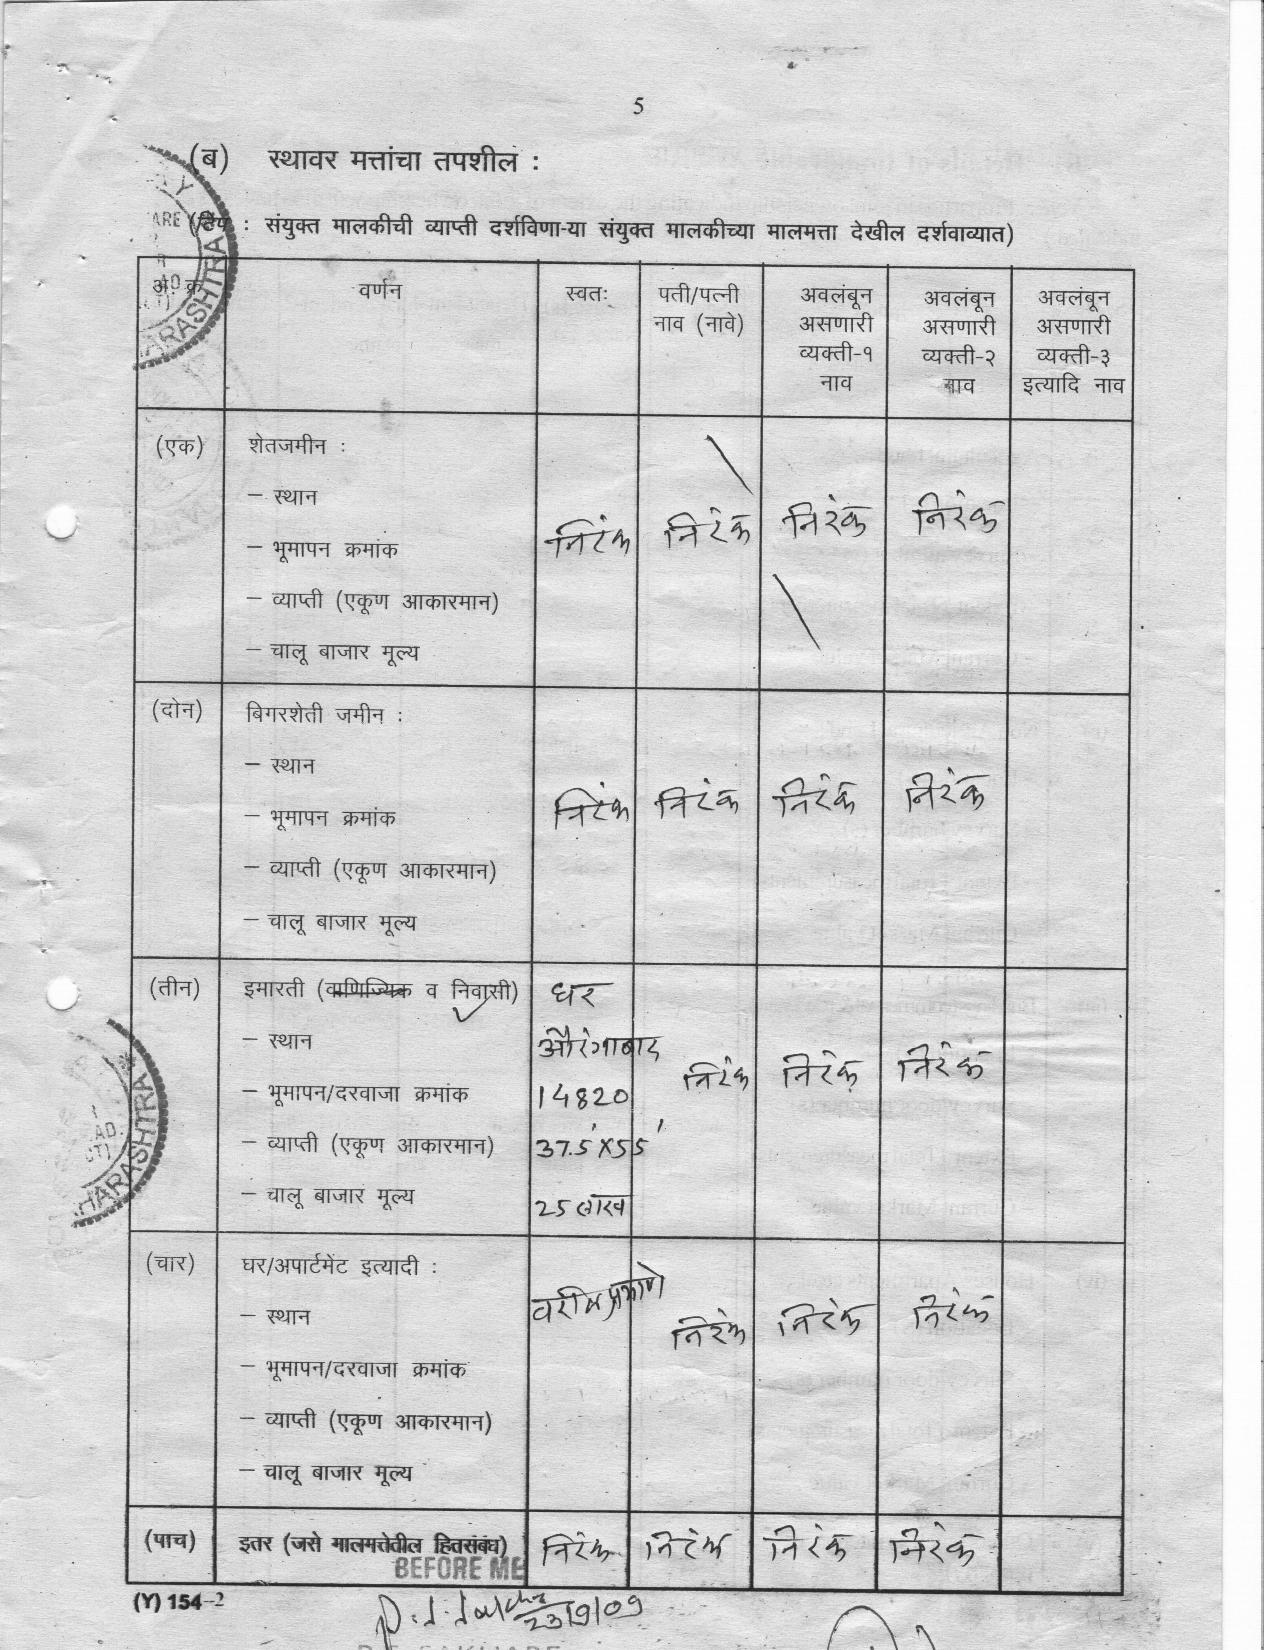 5
(ब) स्थावर मत्तांचा तपशील :
(टिप : संयुक्त मालकीची व्याप्ती दर्शविणा-या संयुक्त मालकीच्या मालमत्ता देखील दर्शवाव्यात)
अ. क्र वर्णन स्वतः पती/पत्नी नाव (नावे) अवलंबून असणारी व्यक्ती-१ नाव अवलंबून असणारी व्यक्ती-२ नाव अवलंबून असणारी व्यक्ती-३ इत्यादि नाव
(एक) शेतजमीन :
– स्थान
– भूमापन क्रमांक निरंक निरंक निरंक निरंक
– व्याप्ती (एकूण आकारमान)
– चालू बाजार मूल्य
(दोन) बिगरशेती जमीन :
– स्थान
– भूमापन क्रमांक निरंक निरंक निरंक निरंक
– व्याप्ती (एकूण आकारमान)
– चालू बाजार मूल्य
(तीन) इमारती (वाणिज्यिक व निवासी) घर
– स्थान औरंगाबाद निरंक निरंक निरंक
– भूमापन/दरवाजा क्रमांक 14820
– व्याप्ती (एकूण आकारमान) 37.5'X55'
– चालू बाजार मूल्य 25 लाख
(चार) घर/अपार्टमेंट इत्यादी :
– स्थान वरीलप्रमाणे निरंक निरंक निरंक
– भूमापन/दरवाजा क्रमांक
– व्याप्ती (एकूण आकारमान)
– चालू बाजार मूल्य
(पाच) इतर (जसे मालमत्तेतील हितसंबंध) निरंक निरंक निरंक निरंक
BEFORE ME
(Y) 154-2
23/9/09
MAHARASHTRA
MAHARASHTRA